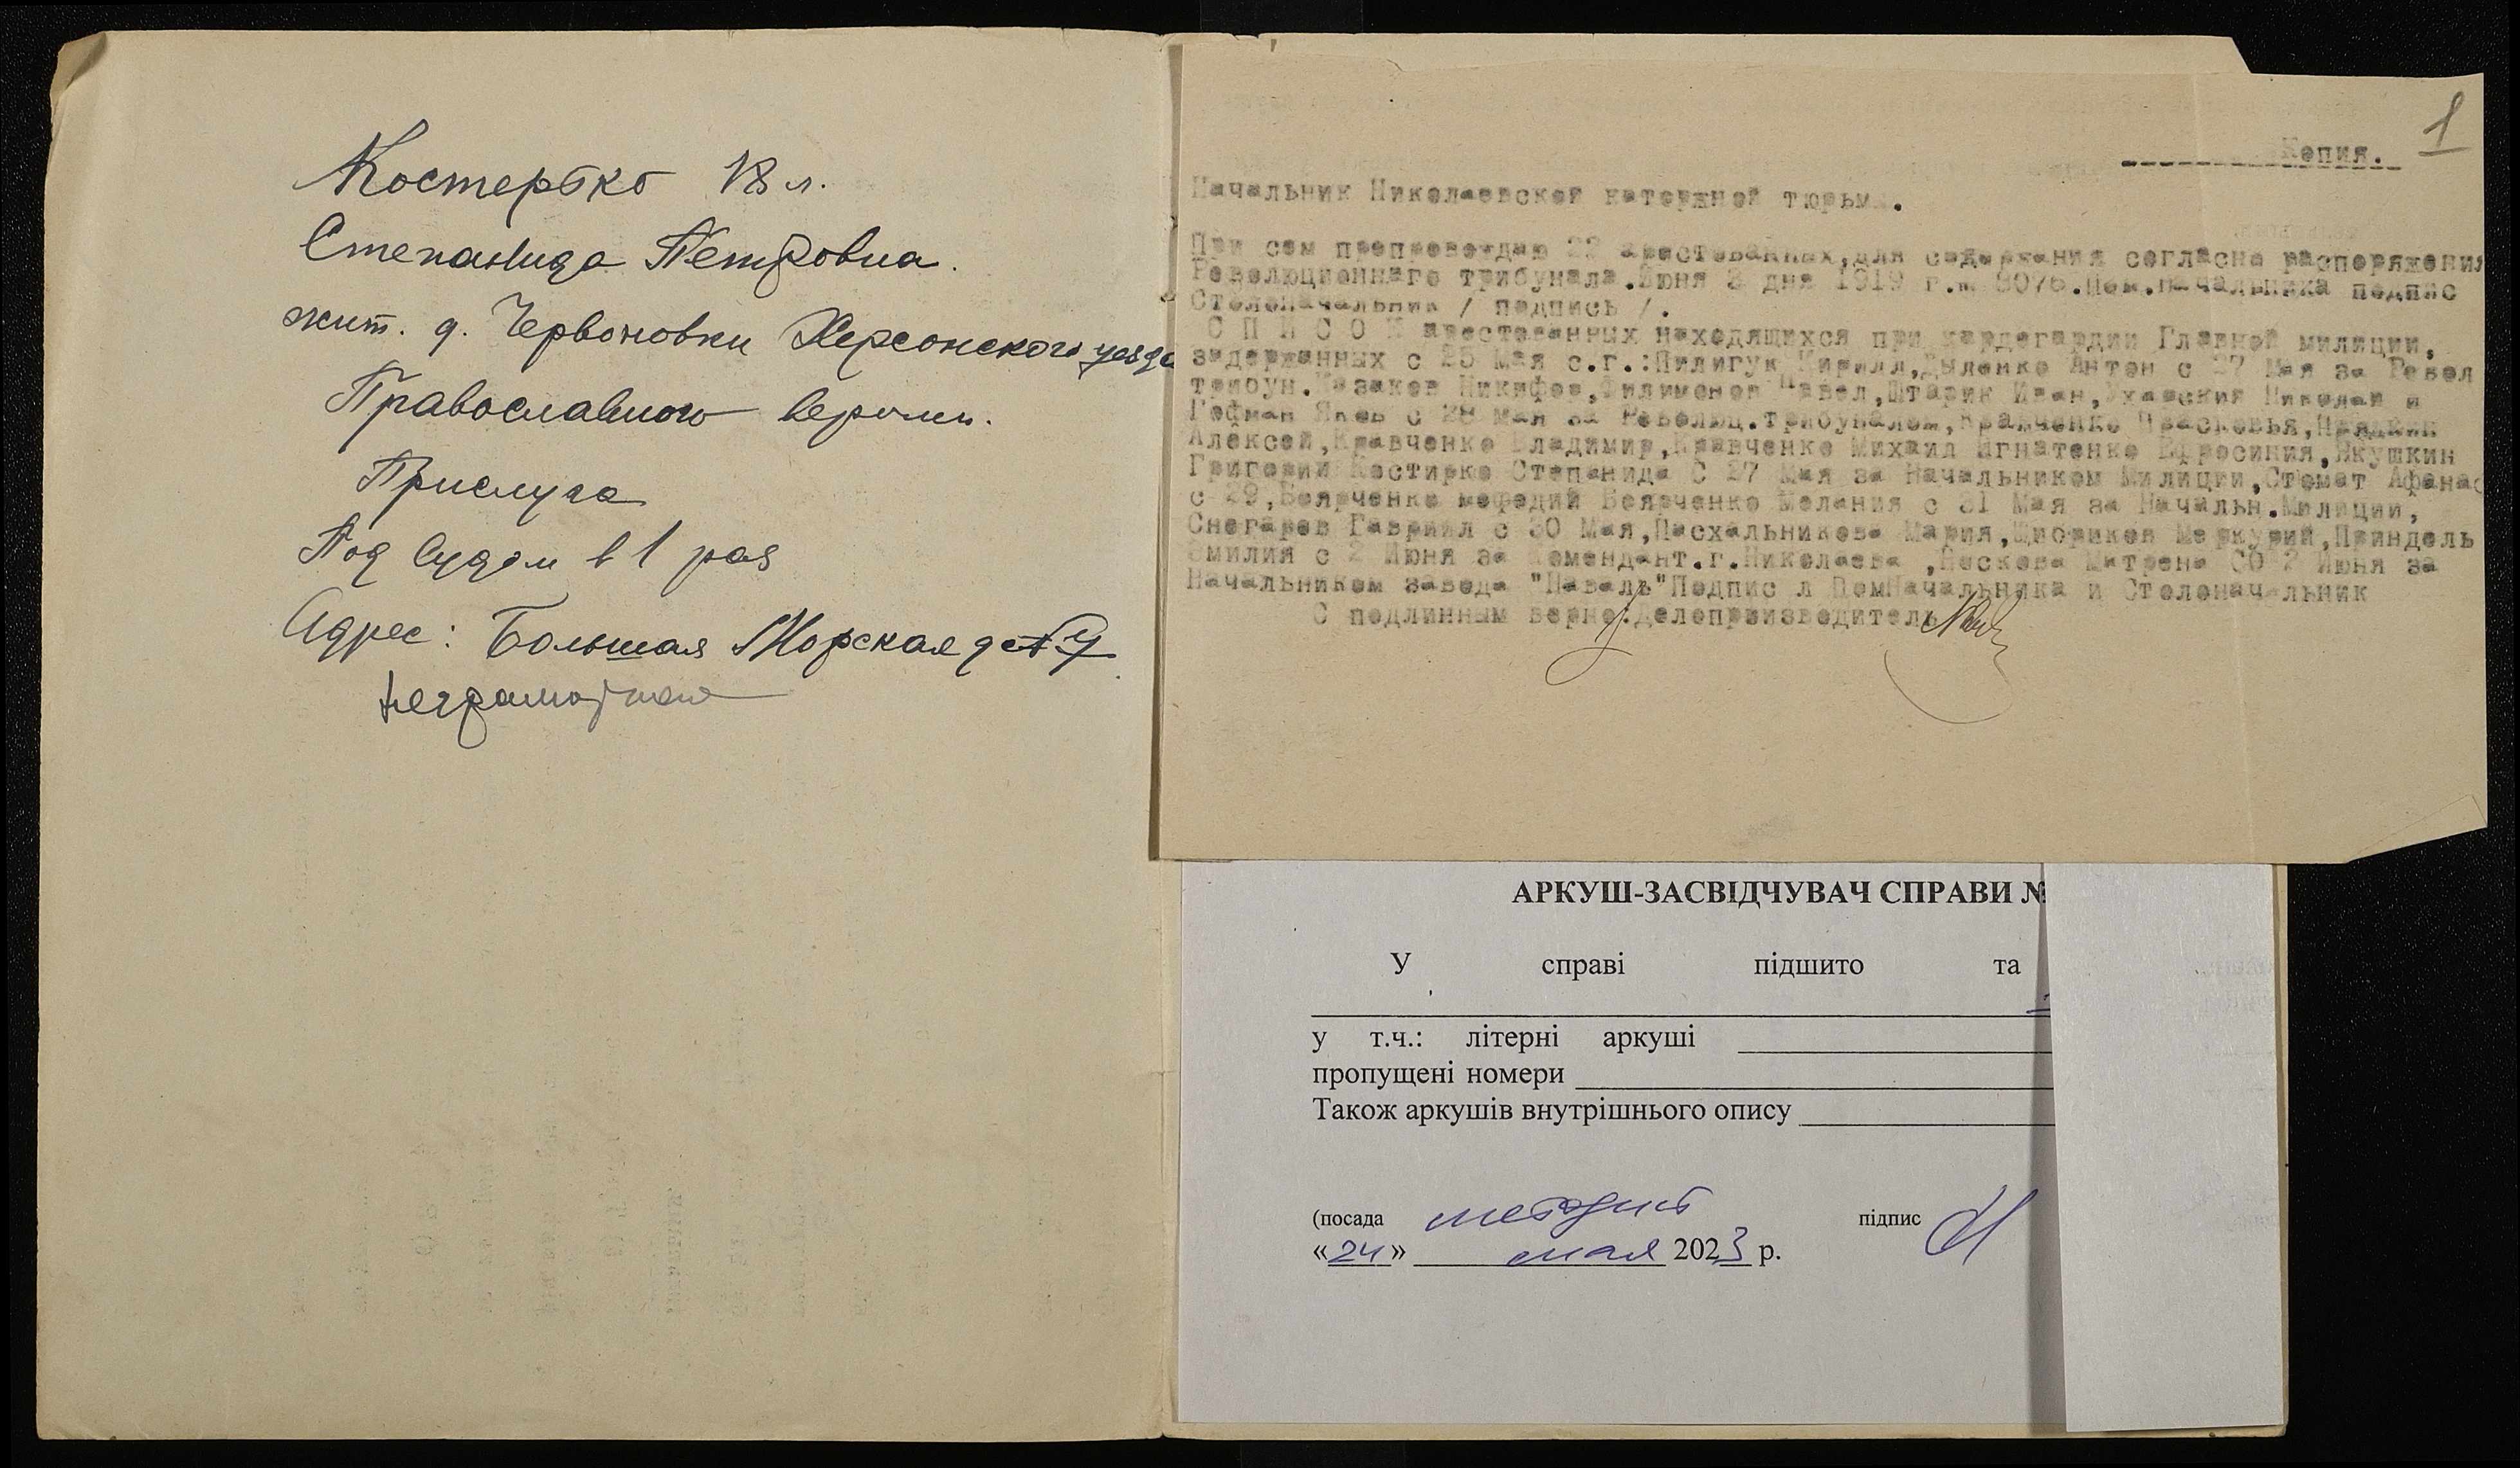 Костертко 18 л.
Степанида Петровна.
жит. д. Червоновки Херсонского уезда
Православного вероисп.
Прислуга
Под судом в 1 раз
Адрес: Большая Морская д
неграмотная
1
Копия.
Начальник Николаевской каторжной тюрьм .
При сем препровождаю 22 арестованных,для содержания согласно распоряжения
Революционнаго трибунала.Июня 3 дня 1919 г.№ 8076.Пом.Начальника подпис
Столоначальник / подпись /.
С П И С О К арестованных находящихся при кардегардии Главной милиции,
задержанных с 25 Мая с.г.:Пилигук Кирилл,Дыленко Антон с 27 Мая за Револ
трибун.Казаков Никифор,Филимонов Павел,Штарик Иван, Николай и
Гофман Яков с 28 Мая за Революц.трибуналом,Кравченко Прасковья,
Алексей,Кравченко Владимир,Кравченко Михаил Игнатенко Ефросиния,Якушкин
Григорий Костирко Степанида С 27 Мая за Начальником Милиции,Стомат Афанас
с 29,Боярченко мефодий Боярченко Мелания с 31 Мая за Начальн.Милиции,
Снегарев Гавриил с 30 Мая,Пасхальникова Мария, Меркурий,Приндель
Эмилия с 2 Июня за Комендант.г.Николаева ,Пескова Матрена СО 2 Июня за
Начальником завода "Наваль"Подпис л ПомНачальника и Столоначальник
С подлинным верно:Делопроизводитель
АРКУШ-ЗАСВІДЧУВАЧ СПРАВИ №
У справі підшито та
у т.ч.: літерні аркуші
пропущені номери
Також аркушів внутрішнього опису
(посада методист підпис
«24» мая 2023 р.